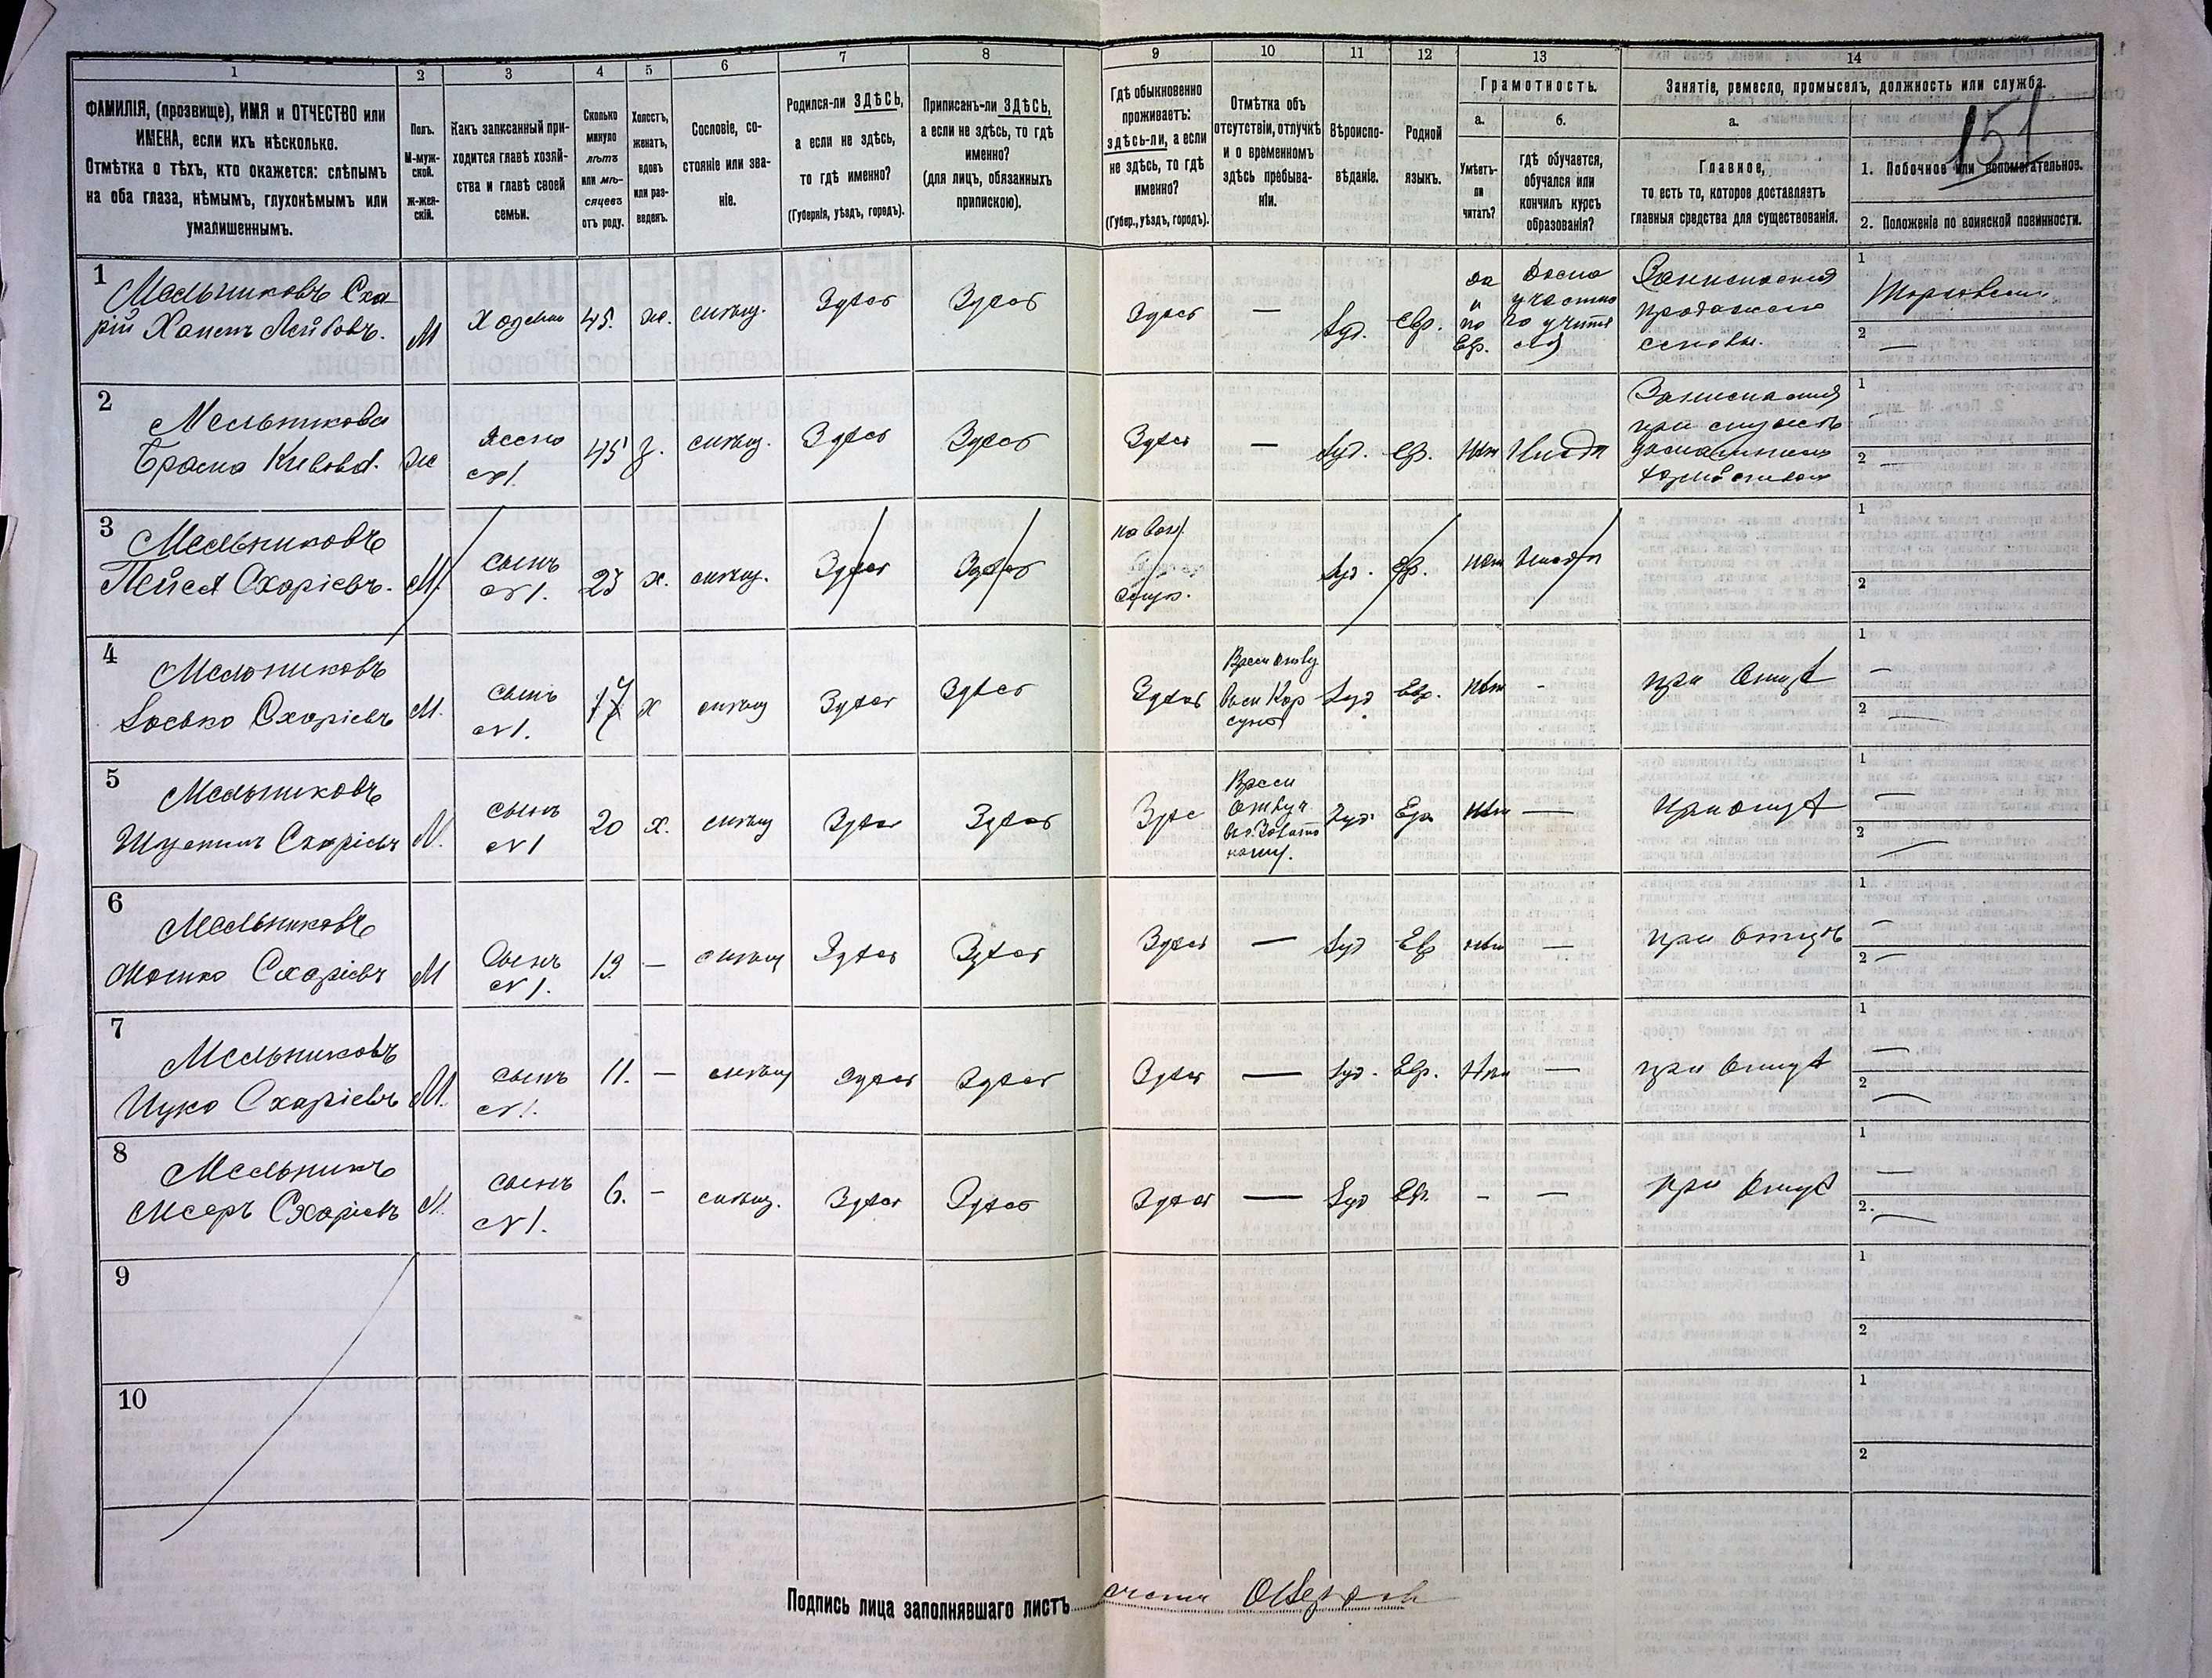 1
2
3
4
5
6
7
8
9
10
11
12
13
14
ФАМИЛІЯ, (прозвище), ИМЯ и ОТЧЕСТВО или
ИМЕНА, если ихъ нѣсколько.
Отмѣтка о тѣхъ, кто окажется: слѣпымъ
на оба глаза, нѣмымъ, глухонѣмымъ или
умалишеннымъ.
Полъ.
М-муж-
ской.
Ж-жен-
скій.
Какъ записанный при-
ходится главѣ хозяй-
ства и главѣ своей
семьи.
Сколько
минуло
лѣтъ
или мѣ-
сяцевъ
отъ роду.
Холостъ,
женатъ,
вдовъ
или раз-
веденъ.
Сословіе, со-
стояніе или зва-
ніе.
Родился-ли ЗДѢСЬ,
а если не здѣсь,
то гдѣ именно?
(Губернія, уѣздъ, городъ).
Приписанъ-ли ЗДѢСЬ,
а если не здѣсь, то гдѣ
именно?
(для лицъ, обязанныхъ
припискою).
Гдѣ обыкновенно
проживаетъ:
здѣсь-ли, а если
не здѣсь, то гдѣ
именно?
(Губер., уѣздъ, городъ).
Отмѣтка объ
отсутствіи, отлучкѣ
и о временномъ
здѣсь пребыва-
ніи.
Вѣроиспо-
вѣданіе.
Родной
языкъ.
Грамотность.
а.
Умѣетъ-
ли
читать?
б.
гдѣ обучается,
обучался или
кончилъ курсъ
образованія?
Занятіе, ремесло, промыселъ, должность или служба.
а.
Главное,
то есть то, которое доставляетъ
главныя средства для существованія.
151
1. Побочное или вспомогательное.
2. Положеніе по воинской повинности.
1
Мельниковъ Сха-
рій Лейбовъ.
М
45.
ж.
Здѣсь
Здѣсь
Здѣсь
—
Іуд.
Евр.
да
и
по
Евр.
продажею
1
2
—
2
Мельникова
Кивова.
Ж
жена
№1.
45
з.
Здѣсь
Здѣсь
Здѣсь
—
Іуд.
Евр.
нѣтъ
Нигдѣ
при мужѣ
1
2
3
Мельниковъ
Пейса Схаріевъ.
М.
сынъ
№1.
23
х.
Здѣсь
Здѣсь
Іуд.
Евр.
нѣтъ
Нигдѣ
1
2
4
Мельниковъ
Іосько Схаріевъ
М.
сынъ
№1.
17
х
Здѣсь
Здѣсь
Здѣсь
Іуд
Евр.
нѣтъ
-
при отцѣ
1
—
2
—
5
Мельниковъ
Схаріевъ
М.
сынъ
№1
20
х.
Здѣсь
Здѣсь
Здѣс
Іуд.
Евр.
нѣтъ
—
при отцѣ
1
—
2
—
6
Мельниковъ
Мошко Схаріевъ
М
Сынъ
№1.
13
—
Здѣсь
Здѣсь
Здѣсь
—
Іуд
Евр
нѣтъ
—
при отцѣ
1
—
2
—
7
Мельниковъ
Ицко Схаріевъ
М.
сынъ
№1.
11.
—
Здѣсь
Здѣсь
Здѣсь
—
Іуд.
Евр.
Нѣтъ
—
при отцѣ
1
—
2
—
8
Мельникъ
Мееръ Схаріевъ
М.
сынъ
№1.
6.
-
Здѣсь
Здѣсь
Здѣсь
—
Іуд
Евр.
-
—
при отцѣ
1
—
2.
—
9
1
2
10
1
2
Подпись лица заполнявшаго листъ